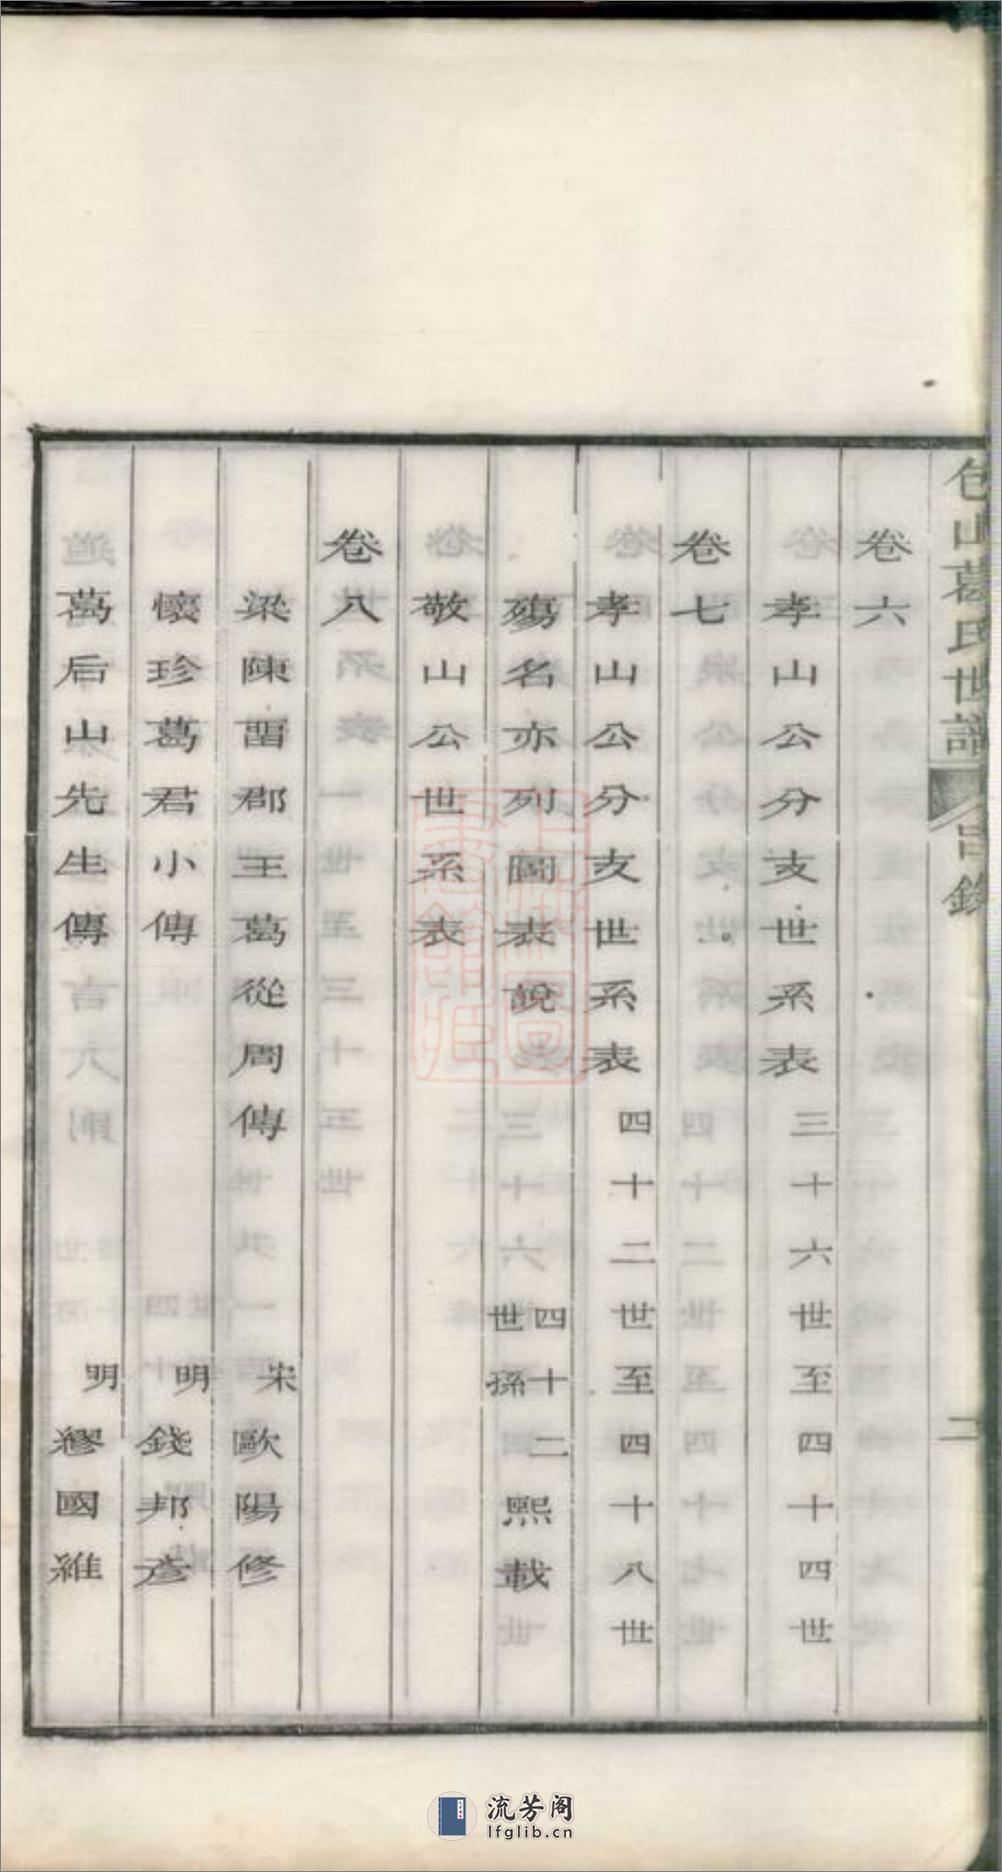 包山葛氏世譜 目錄 二
卷六
孝山公分支世系表 三十六世至四十四世
卷七
孝山公分支世系表 四十二世至四十八世
殤名亦列圖表說 四十二世孫 熙載
敬山公世系表
卷八
梁陳留郡王葛從周傳 宋 歐陽修
懷珍葛君小傳 明 錢邦彥
葛后山先生傳 明 繆國維
流芳阁
lfglib.cn